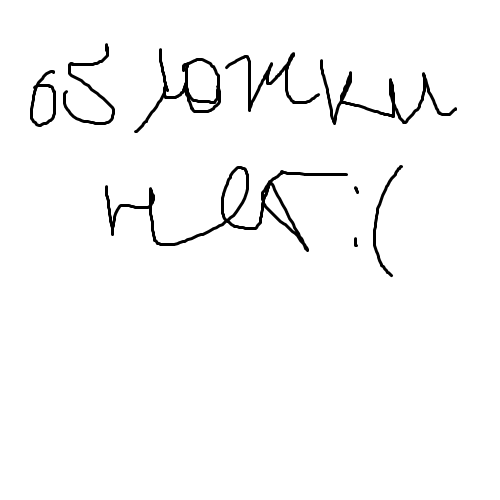 обложки
нет :(